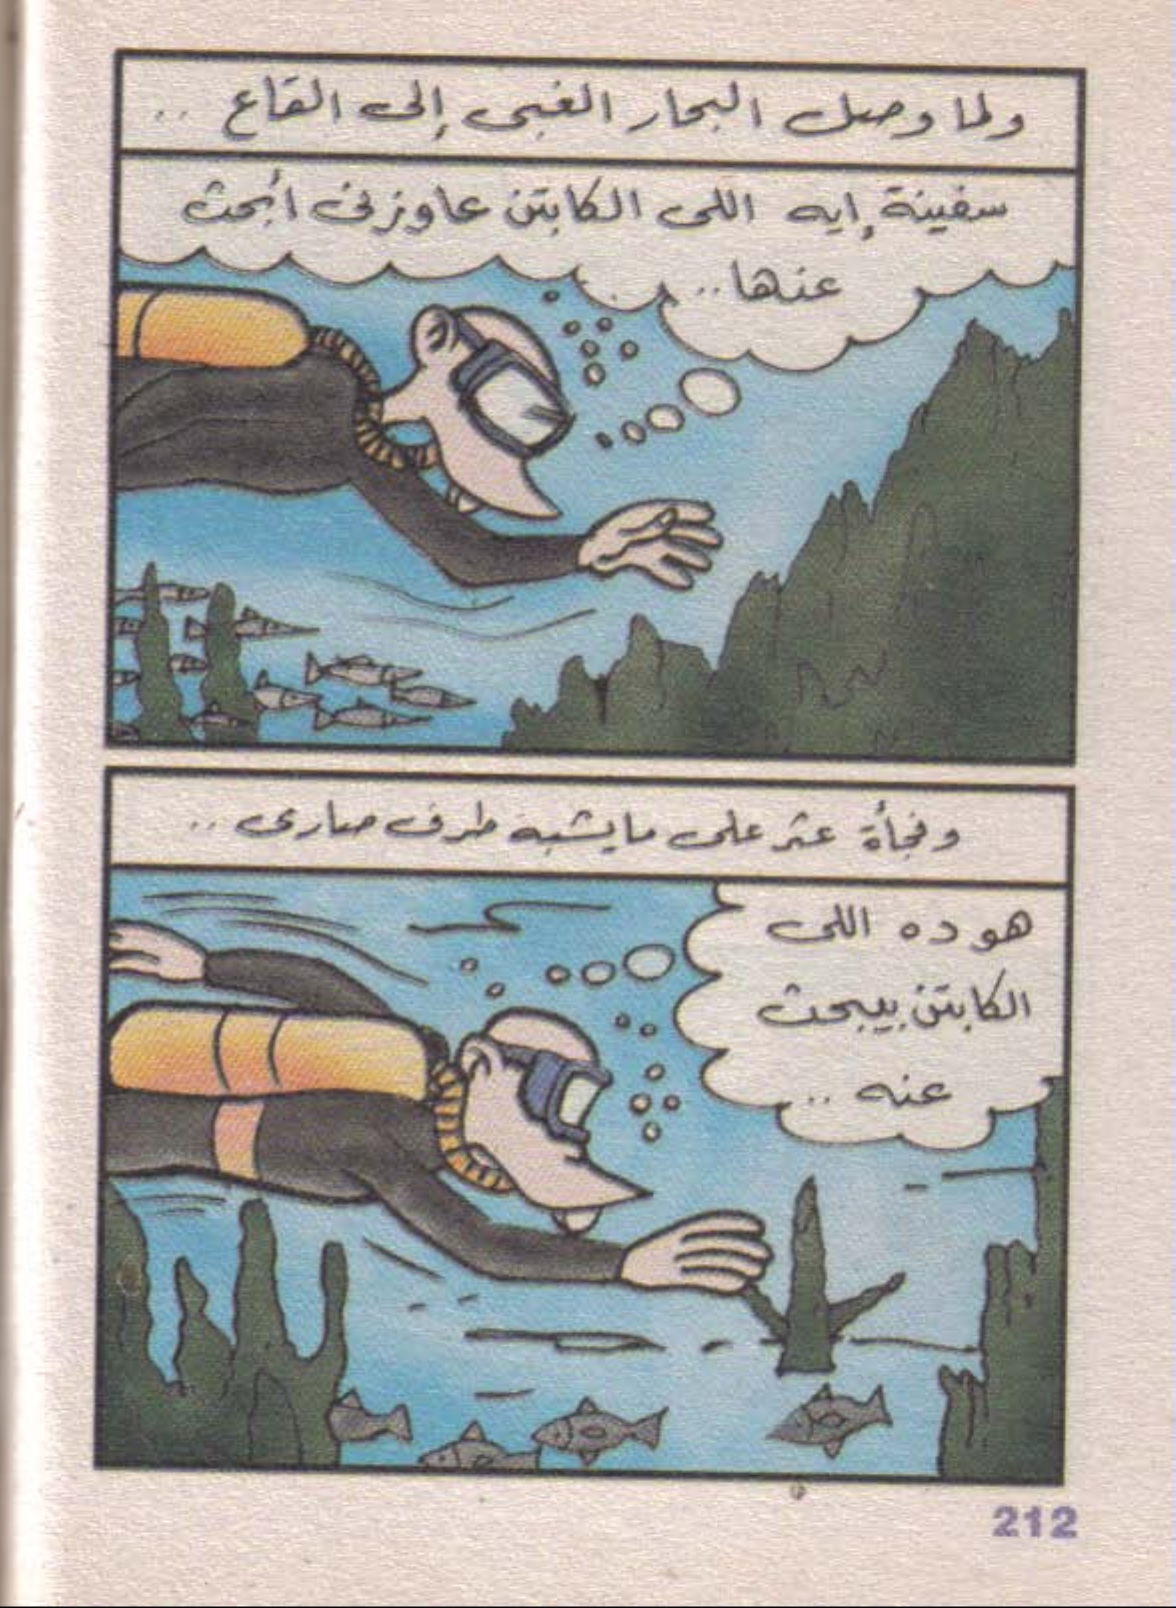 ولما وصل البحار الغبى إلى القاع ..
سفينة إيه اللى الكابتن عاوزنى أبحث
عنها ..
وفجأة عثر على ما يشبه طرف صارى ..
هو ده اللى
الكابتن بيبحث
عنه ..
212